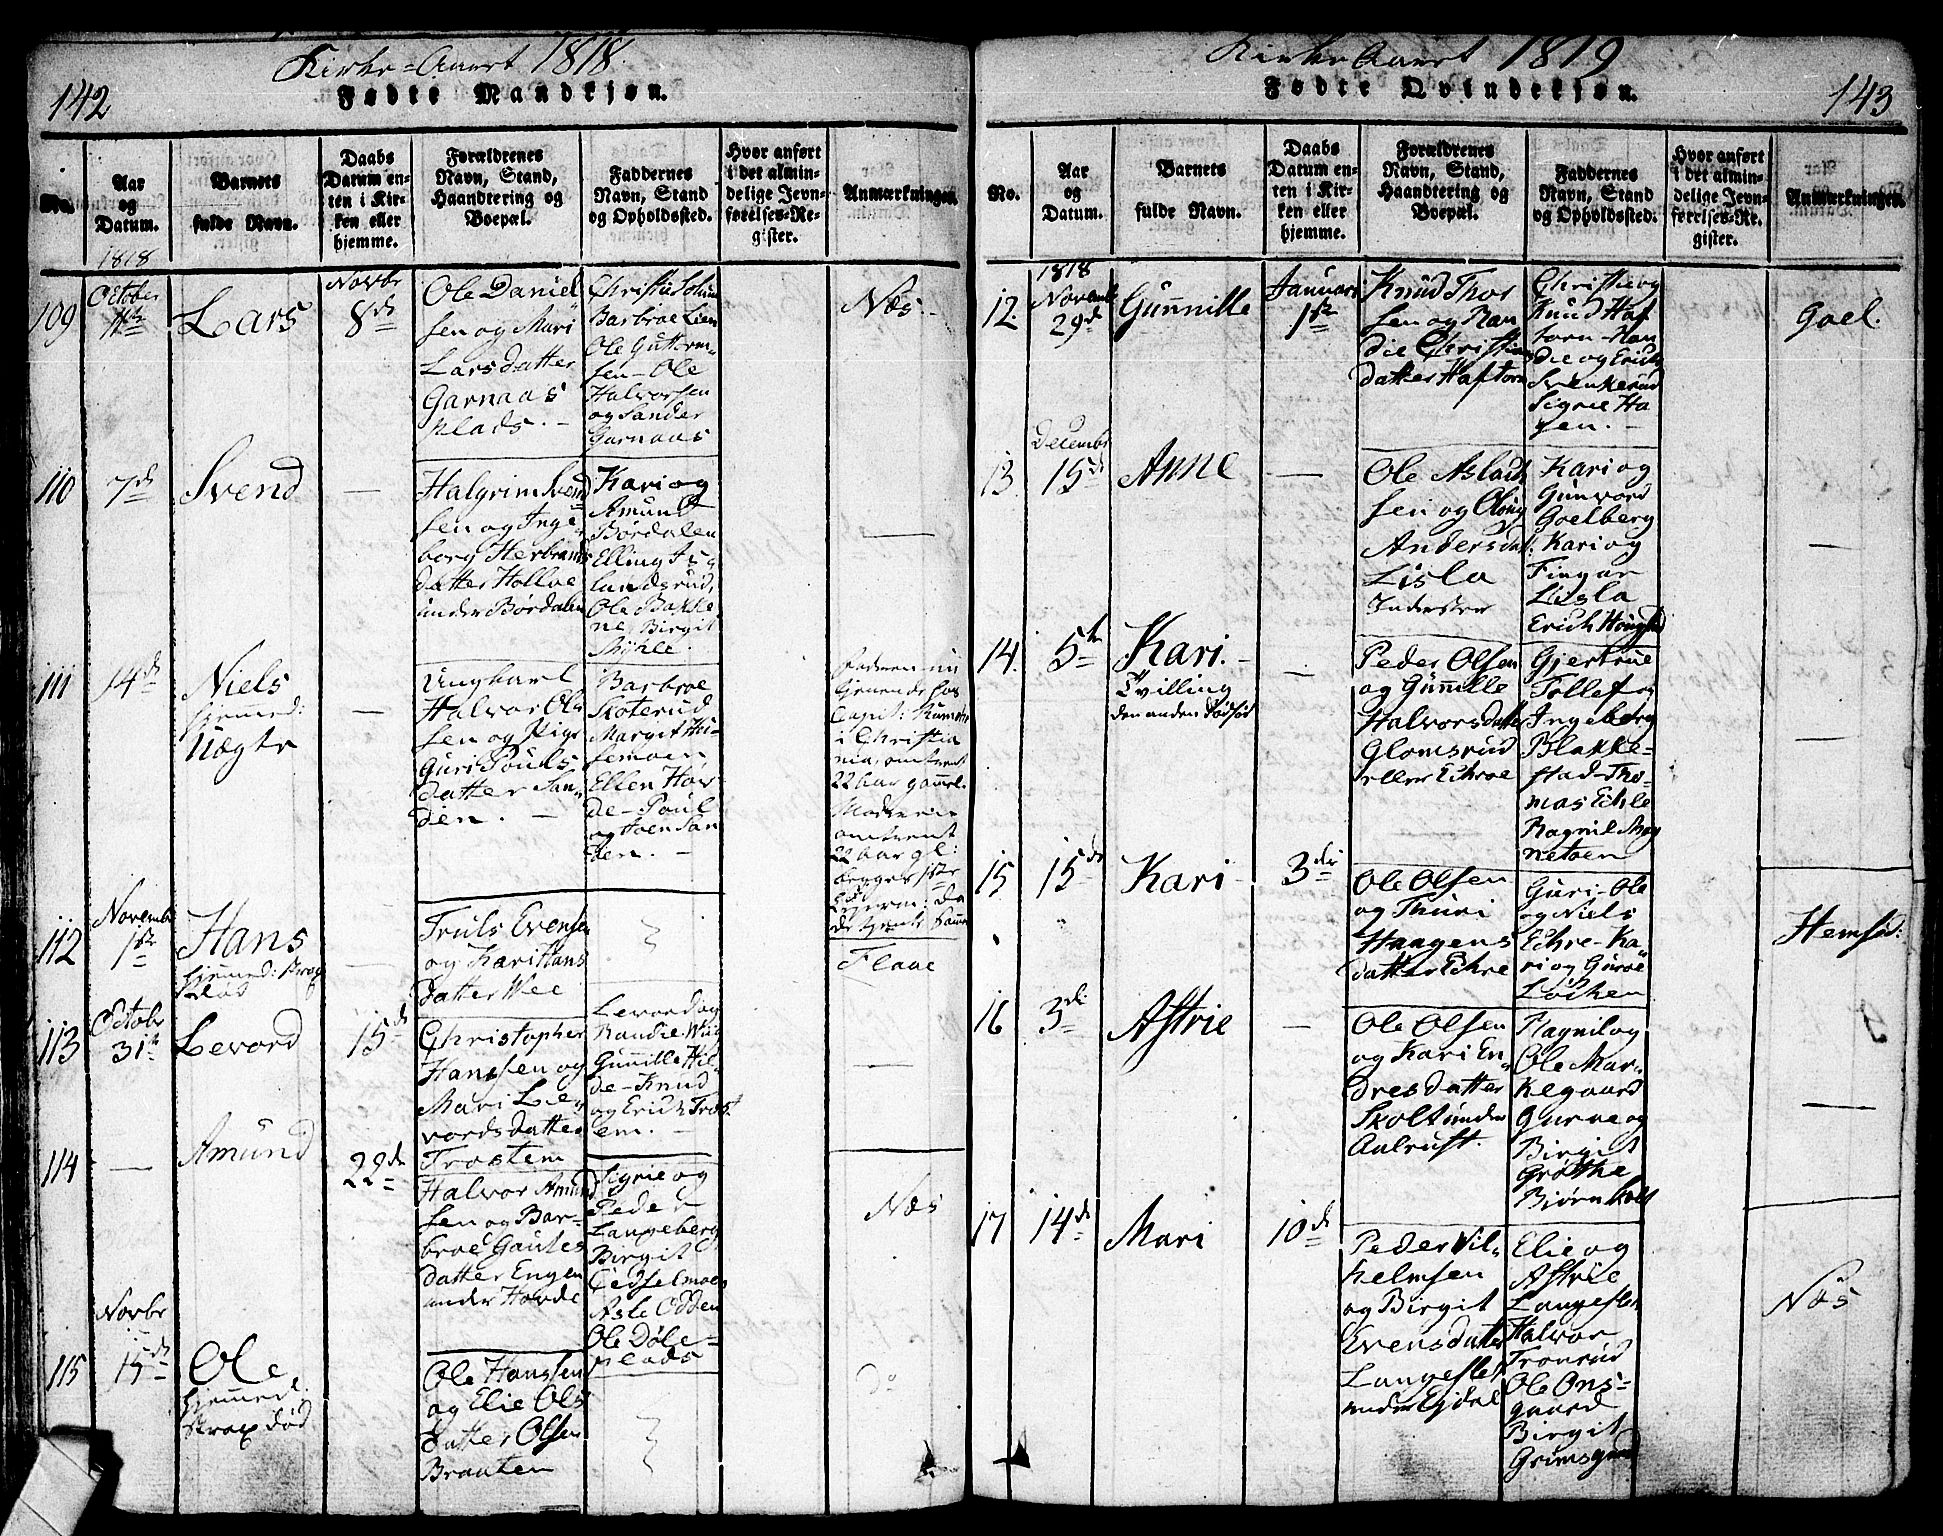 142
Kirke-Aaret 1818.
Fødte Mandkjøn.
No.
Aar
og
Datum.
Barnets
fulde Navn.
Daabs
Datum en-
ten i Kir-
ken eller
hjemme.
Forældrenes
Navn, Stand,
Haandtering og
Boepæl.
Faddernes
Navn, Stand
og Opholdssted.
Hvor anført
i det almin-
delige Jevn-
førelses-Re-
gister.
Anmærkningen.
1818
109
October
Lars
Novbr
8de
Ole Daniel
sen og Mari
Larsdatter
Garnaas
plads. -
Barbroe Lien
Ole Guttorm-
sen - Ole
Halvorsen
og Sander
Garnaas
Næs.
110
7de
Svend
-
Halgrim Svend
sen og Inge
borg Herbrands
datter Hollve
under Børdalen
Kari og
Amund
Børdalen
Elling Is-
landsrud,
Ole Bakke
ne, Birgit
-
111
14de
Niels
hjemmed:
Uægte
-
Ungkarl
Halvor Ol-
sen og Pige
Guri Pouls
datter San-
den. -
Barbroe
Skoterud
Margit Hei-
semoen
Ellen Hov-
de - Poul
og Joen San
den. -
Faderen nu
tjenende hos
Capit:
i Christia
nia, omtrent
22 Aar gammel.
Moderen
omtrent
22 Aar gl:
begges 1ste
112
Novembr
1ste
Hans
hjemmed: strax
-
Truls Evensen
og Kari Hans
datter Wee
Flaae
113
Octobr
31te
Levord
15de
Christopher
Hanssen og
Mari Le-
vordsdatter
Trostem
Levord og
Randie Wiig
Gunnille Hil-
de - Knud
og Erich Trost
em. -
-
114
-
Amund
22de
Halvor Amund
sen og Bar-
broe Gautes
datter Engen
under Hovde
Sigrie og
Peder
Langeberg
Birgit
Asle Odden
Ole Døle-
plads
Næs
115
Novbr
15de
Ole
hjemmed.
strax død
Ole Hanssen
og Elie Ols
datter Olsen
Braaten
do
143
Kirke Aaret 1819
Fødte Qvindekjøn.
No.
Aar
og
Datum.
Barnets
fulde Navn.
Daabs
Datum en-
ten i Kir-
ken eller
hjemme.
Forældrenes
Navn, Stand,
Haandtering og
Boepæl.
Faddernes
Navn, Stand
og Opholdssted.
Hvor anført
i det almin-
delige Jevn-
førelses-Re-
gister.
Anmærkningen.
1818
12.
Novembr
29de
Gunnille
Januari
1ste
Knud Thor
sen og Ran
die Christians
datter Haftorn
Christie og
Knud Haf
torn - Ran
die og Erich
Svenkerud
Sigrie Ha
gen. -
Goel.
13.
Decembr
15de
Anne
-
Ole Aslach
sen og Olaug
Andersdat:
Lisla
Inderster
Kari og
Gunvord
Goelberg
Kari og
Fingar
Lisla
Erich Houglid
-
14.
5te
Kari. -
Tvilling
den anden dødfød
-
Peder Olsen
og Gunnille
Halvorsdatter
Glomsrud
eller Echroe
Gjertrue
Tollef og
Ingeborg
Blakke-
stad - Tho-
mas Echre
Ragnil Mag
netoen
-
15
15de
Kari
3die
Ole Olsen
og Thuri
Haagens
datter Echre
Guri - Ole
og Niels
Echre - Ka
ri og Guroe
Løcken
Hemsed:
16
3die
Astrie
-
Ole Olsen
og Kari En-
dresdatter
Skolt under
Aalrust.
Ragnil og
Ole Mar-
kegaard
Guroe og
Birgit
Grøthe
Bjørn holt
-
17
14de
Mari
10de
Peder Vil-
helmsen
og Birgit
Evensdatter
Langeslet
under Ejdal
Elie og
Astrie
Langeslet
Halvor
Tronrud
Ole Ons-
gaard
Birgit
Grimsgaard
Næs